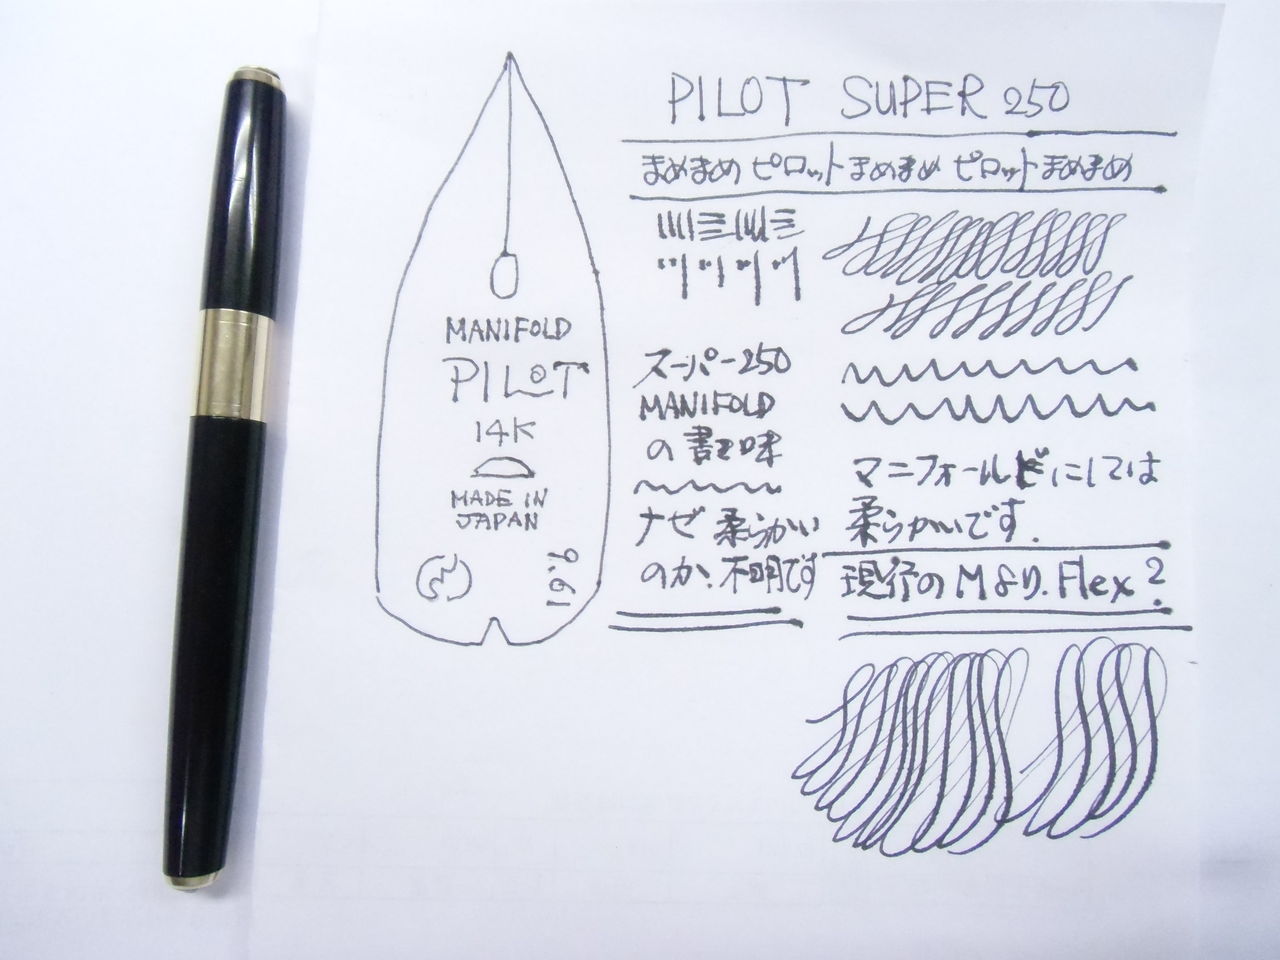 PILOT SUPER 250
まめまめ ピロット まめまめ ピロット まめまめ
MANIFOLD
PILOT
14K
MADE IN
JAPAN
9.61
スーパー250
MANIFOLD
の書き味
ナゼ 柔らかい
のか? 不明です
マニフォールドにしては
柔らかいです.
現行のMより. Flex?